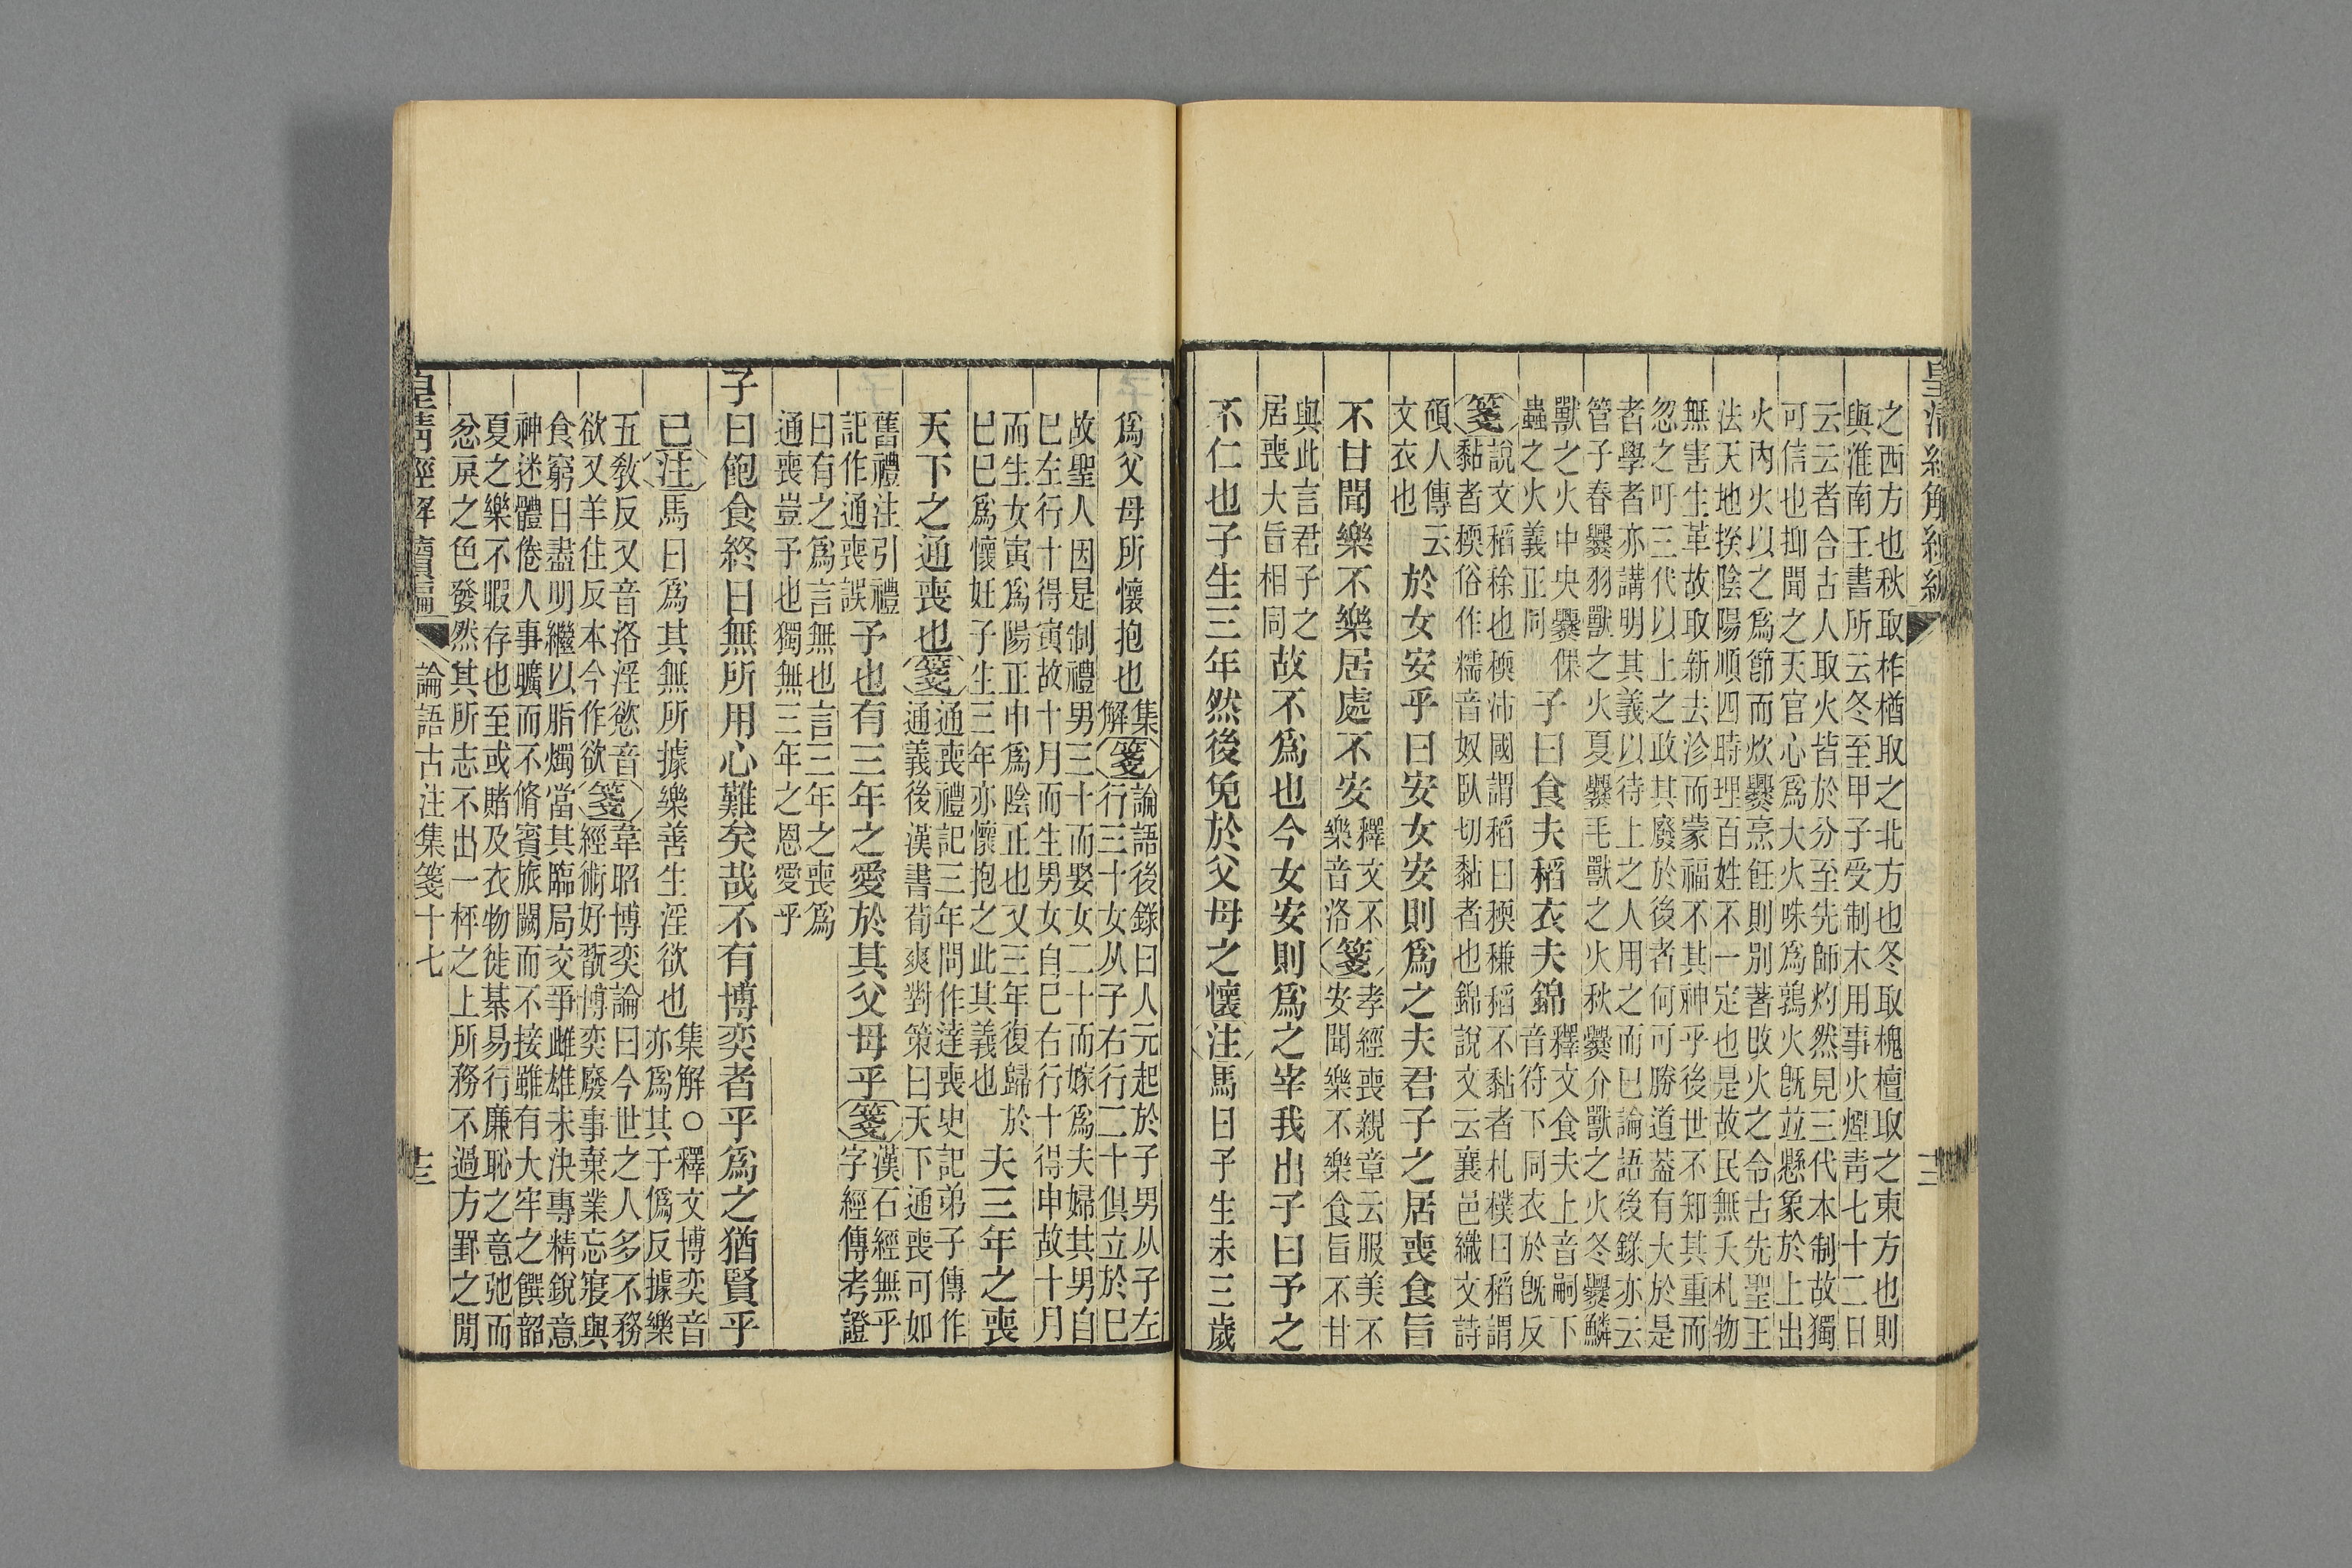 皇清經解續編
三
之西方也秋取柞楢取之北方也冬取槐檀取之東方也則
與淮南王書所云冬至甲子受制木用事火煙青七十二日
云云者合古人取火皆於分至先師灼然見三代本制故獨
可信也抑聞之天官心爲大火咮爲鶉火旣竝懸象於上出
火內火以之爲節而炊爨烹飪則別著改火之令古先聖王
法天地揆陰陽順四時理百姓不一定也是故民無夭札物
無害生革故取新去沴而蒙福不其神乎後世不知其重而
忽之吁三代以上之政其廢於後者何可勝道葢有大於是
者學者亦講明其義以待上之人用之而已論語後錄亦云
管子春爨羽獸之火夏爨毛獸之火秋爨介獸之火冬爨鱗
獸之火中央爨倮
蟲之火義正同
子曰食夫稻衣夫錦
釋文食夫上音嗣下
音符下同衣於旣反
箋
說文稻稌也稬沛國謂稻曰稬稴稻不黏者札樸曰稻謂
黏者稬俗作糯音奴臥切黏者也錦說文云襄邑織文詩
碩人傳云
文衣也
於女安乎曰安女安則爲之夫君子之居喪食旨
不甘聞樂不樂居處不安
釋文不
樂音洛
箋
孝經喪親章云服美不
安聞樂不樂食旨不甘
與此言君子之
居喪大旨相同
故不爲也今女安則爲之宰我出子曰予之
不仁也子生三年然後免於父母之懷注馬曰子生未三歲
爲父母所懷抱也
集
解
箋
論語後錄曰人元起於子男从子左
行三十女从子右行二十俱立於巳
故聖人因是制禮男三十而娶女二十而嫁爲夫婦其男自
巳左行十得寅故十月而生男女自巳右行十得申故十月
而生女寅爲陽正申爲陰正也又三年復歸於
巳巳爲懷妊子生三年亦懷抱之此其義也
夫三年之喪
天下之通喪也箋
通喪禮記三年問作達喪史記弟子傳作
通義後漢書荀爽對策曰天下通喪可如
舊禮注引禮
記作通喪誤
予也有三年之愛於其父母乎箋
漢石經無乎
字經傳考證
曰有之爲言無也言三年之喪爲
通喪豈予也獨無三年之恩愛乎
子曰飽食終日無所用心難矣哉不有博奕者乎爲之猶賢乎
已注馬曰爲其無所據樂善生淫欲也
集解○釋文博奕音
亦爲其于僞反據樂
五敎反又音洛淫慾音
欲又羊住反本今作欲
箋
韋昭博奕論曰今世之人多不務
經術好翫博奕廢事棄業忘寢與
食窮日盡明繼以脂燭當其臨局交爭雌雄未決專精銳意
神迷體倦人事曠而不脩賓旅闕而不接雖有大牢之饌韶
夏之樂不暇存也至或賭及衣物徙棊易行廉恥之意弛而
忿戾之色發然其所志不出一枰之上所務不過方罫之閒
皇淸經解續編
論語古注集箋十七